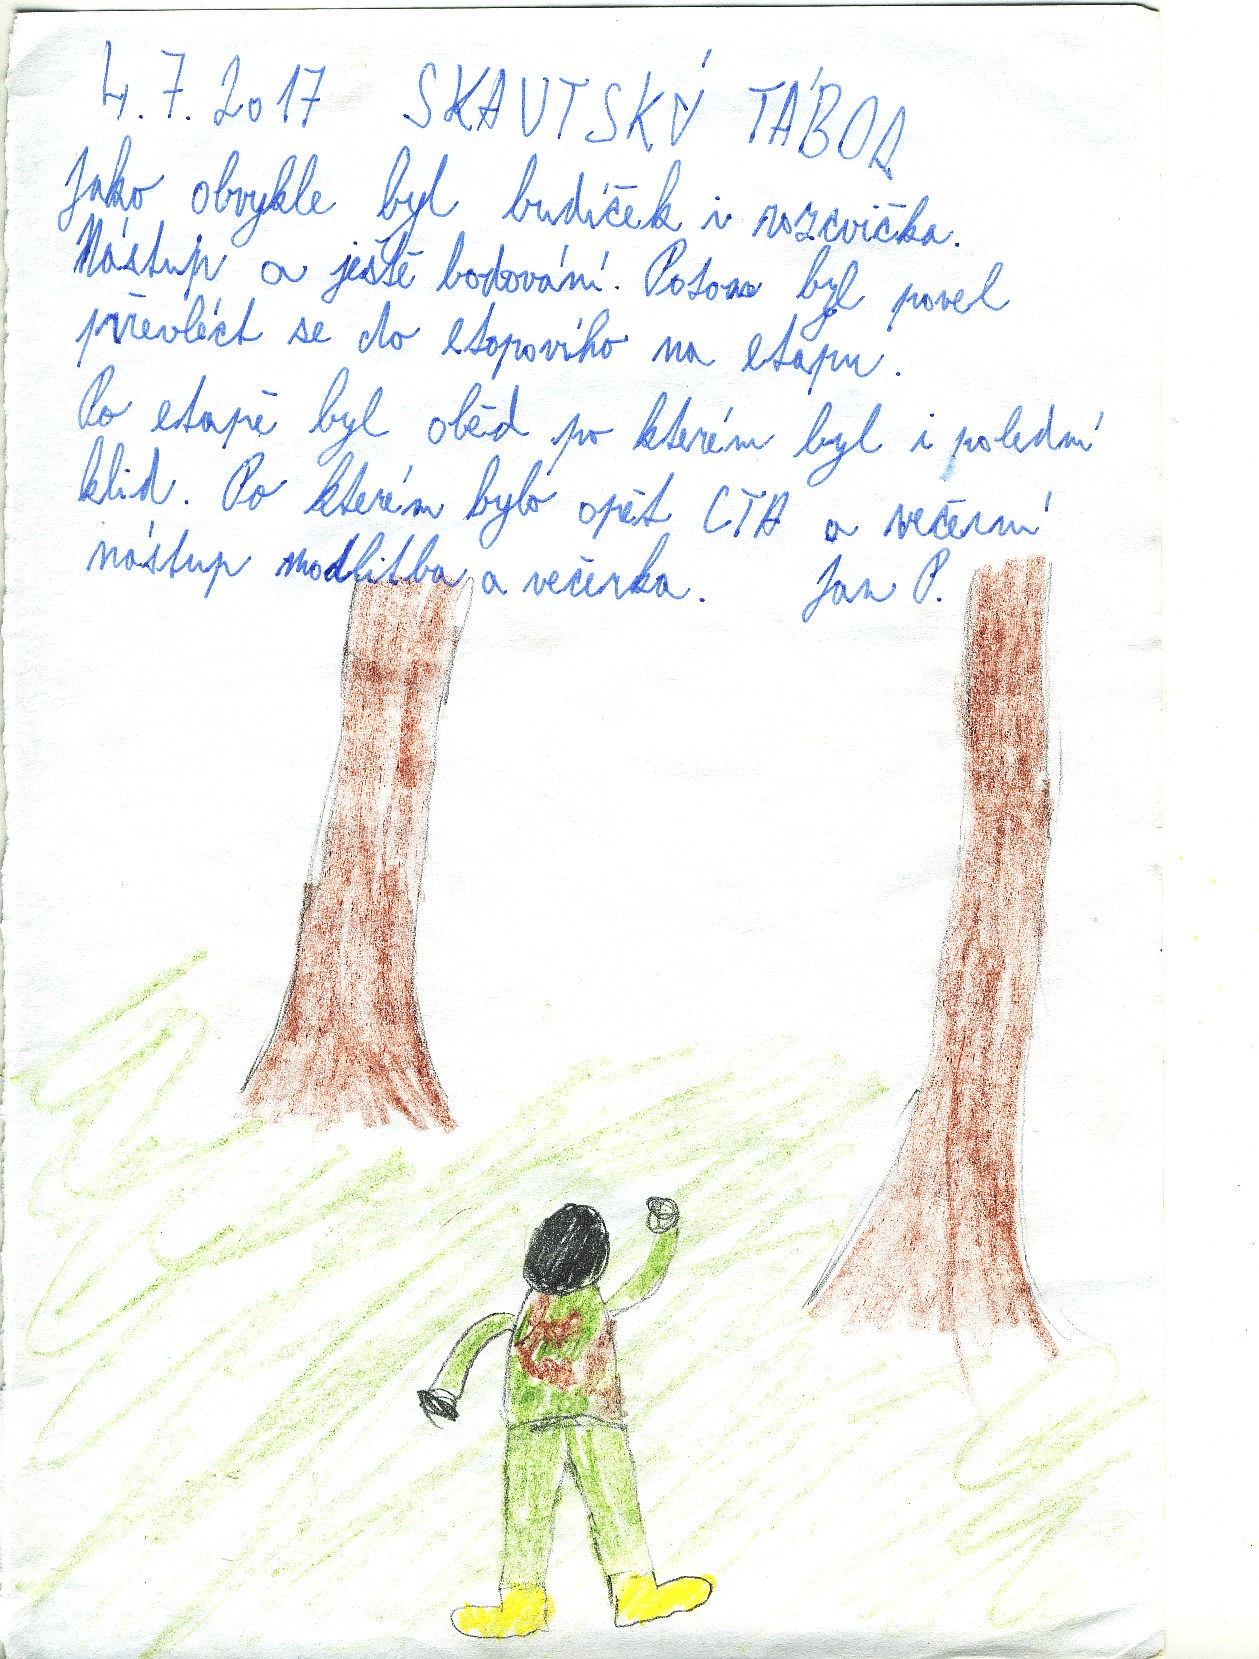 4.7.2017 SKAVTSKÝ TÁBOR
Jako obvykle byl budíček i rozcvička.
Nástup a ještě bodování. Potom byl povel
převléct se do etapového na etapu.
Po etapě byl oběd po kterém byl i polední
klid. Po kterém bylo opět CTH a večerní
nástup modlitba a večerka. Jan P.